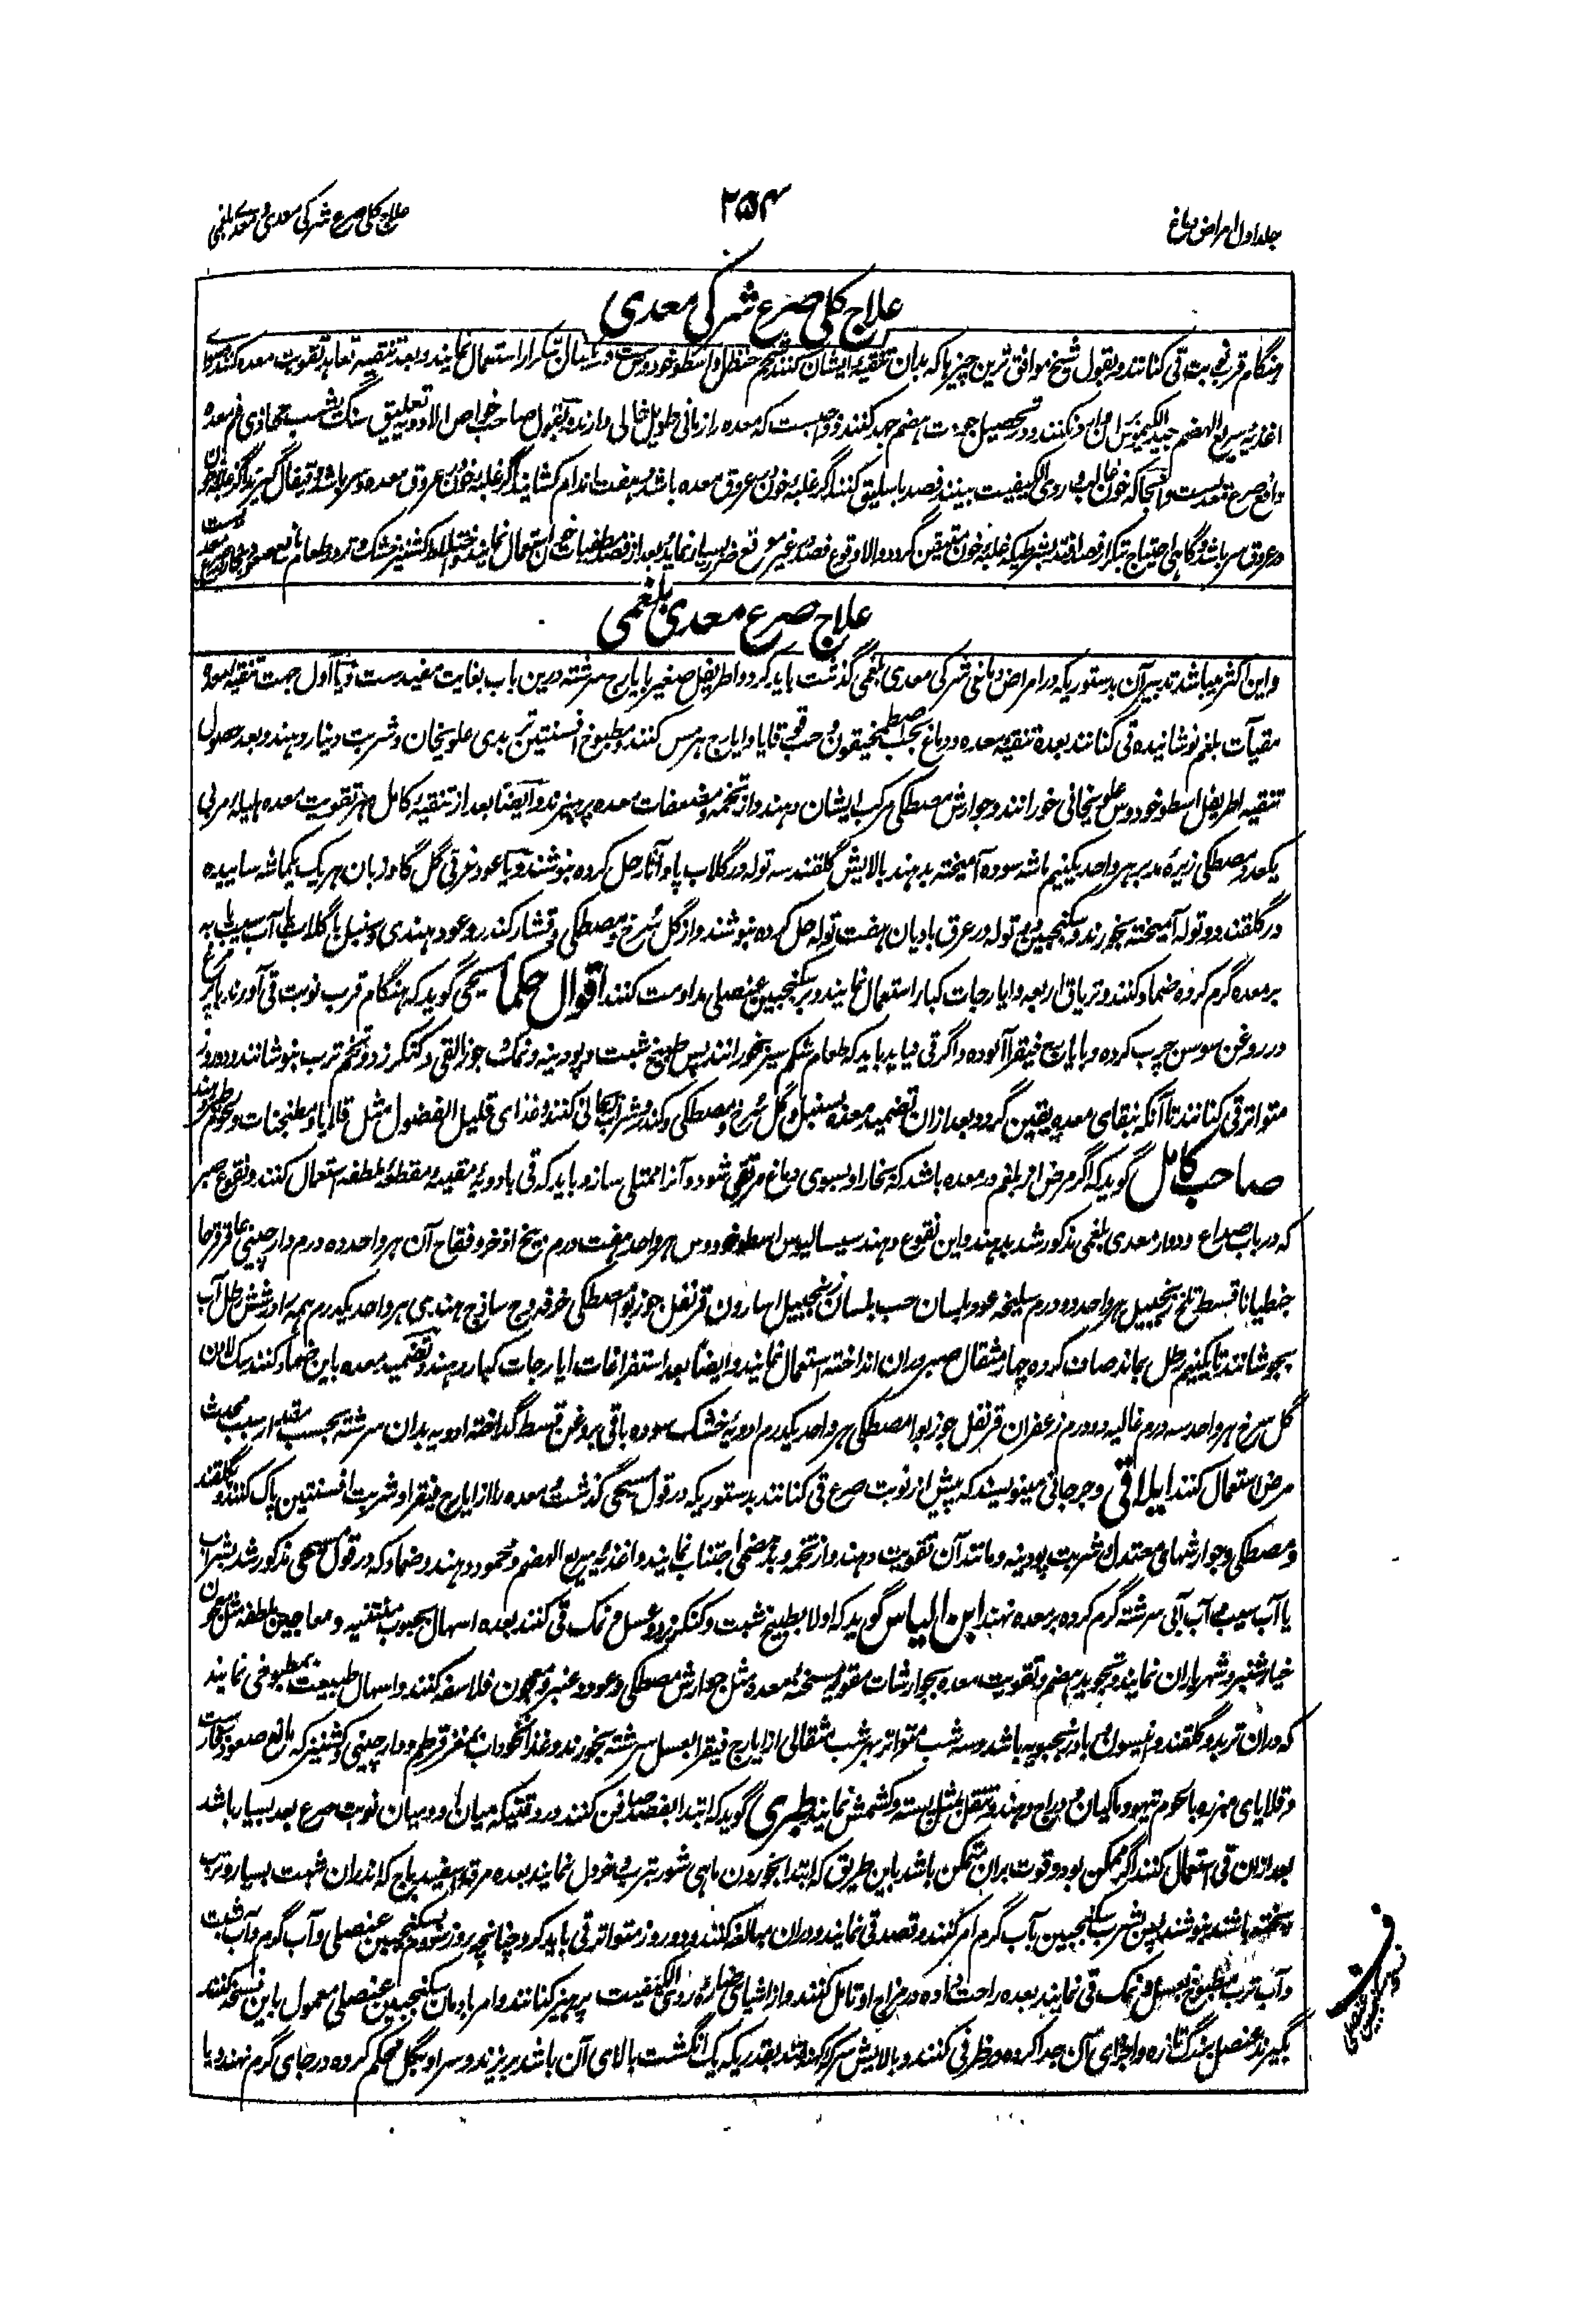 جلد اول امراض دماغ
۲۵۴
علاج کلی صرع شرکی معدی و معدی بلغمی
علاج کلی صرع شرکی معدی
هنگام قرب نوبت قی کنانند و بقول شیخ موافق ترین چیزها که بدان تنقیه ایشان کنند شحم حنظل و اسطوخودوس ست در سال بتکرار استعمال نمایند و بعد تنقیه تعاهد تقویت معده کنند
اغذیه سریع الهضم جید الکیموس کنند و در تحصیل جودت هضم جهد کنند و واجبست که معده را زمانی طویل خالی دارند و بقول صاحب خواص الادویه تعلیق سنگ یشب محاذی فم معده
دافع صرع معدیست و آنجا که خون غالب ردی الکیفیت بینند فصد باسلیق کنند اگر غلبه خون در عروق معده باشد و هفت اندام کشایند اگر غلبه خون در عروق معده و سر باشد و قیفال گیرند اگر غلبه خون
در عروق سر باشد و گاهی احتیاج بتکرار فصد افتد بشرطیکه غلبه خون متیقن گردد والا وقوع فصد در غیر موقع ضرر بسیار نماید بعد از فصد مطفیات خون استعمال نمایند و اختلاط کشنیز خشک و تر در طعام مانع صعود بخار معده ست
علاج صرع معدی بلغمی
و این اکثر میباشد تدبیر آن بدستوریکه در امراض دماغی شرکی معدی بلغمی گذشت باید کرد و اطریفل صغیر بایارج سرشته درین باب بغایت مفیدست و یا اول جهت تنقیه معده
مقیآت بلغم نوشانیده قی کنانند بعده تنقیه معده و دماغ بحب اصطمخیقون و حب قوقایا و ایارج هرمس کنند و مطبوخ افسنتین تربدی علویخان و شربت دینار دهند و بعد حصول
تنقیه اطریفل اسطوخودوس علویخانی خورانند و جوارش مصطکی مرکب ایشان دهند و از تخمه و مضعفات معده پرهیزند و ایضا بعد از تنقیه کامل بهر تقویت معده هلیله مربی
یکعدد مصطکی زیره مدبر هر واحد یکنیم ماشه سوده آمیخته بدهند بالایش گلقند سه توله در گلاب پاو آثار حل کرده بنوشند و یا عود غرقی گل گاوزبان هر یک یکماشه ساییده
در گلقند دو توله آمیخته بخورند و سکنجبین دو توله در عرق بادیان هفت توله حل کرده بنوشند و از گل سرخ و مصطکی و قشار کندر و عود هندی و سنبل با گلاب یا آب سیب یا به
بر معده گرم کرده ضماد کنند و تریاق اربعه و ایارجات کبار استعمال نمایند و بر سکنجبین عنصلی مداومت کنند اقوال حکما مسیحی گوید که هنگام قرب نوبت قی آورند بپر مرغ
در روغن سوسن چرب کرده و بایارج فیقرا آلوده و اگر قی نیاید باید که طعام شکم سیر بخورانند پس طبیخ شبت و پودینه و نمک و جوز القی و کنگرزد و تخم ترب بنوشانند و دو روز
متواتر قی کنانند تا آنکه بنقای معده یقین گردد و بعد ازان تضمید معده بسنبل و گل سرخ و مصطکی و کندر و شراب ریحانی کنند و غذای قلیل الفضول مثل قلایا و مطجنات و لحوم طیور دهند
صاحب کامل گوید که اگر مرض از بلغم در معده باشد که بخار او بسوی دماغ مرتقی شود و آنرا ممتلی سازد باید که قی بادویه مقیه و مقطعه ملطفه استعمال کنند و نقوع صبر
که در باب صداع و دوار معدی بلغمی مذکور شد بدهند و این نقوع دهند سیسالیوس اسطوخودوس هر واحد هفت درم بیخ اذخر و فقاح آن هر واحد ده درم دارچینی عاقرقرحا
جنطیانا قسط تلخ زنجبیل هر واحد دو درم سلیخه عود بلسان حب بلسان زنجبیل اسارون قرنفل جوزبوا مصطکی خرفه وج ساذج هندی هر واحد یکدرم همه را در شش رطل آب
بجوشانند تا یکنیم رطل بماند صاف کرده چهار مثقال صبر دران انداخته استعمال نمایند و ایضا بعد استفراغات ایارجات کبار دهند و تضمید معده باین ضماد کنند سک لادن
گل سرخ هر واحد سه درم غالیه دو درم زعفران قرنفل جوزبوا مصطکی هر واحد یکدرم ادویه خشک سوده باقی بروغن قسط گداخته ادویه بدان سرشته بحسب
مرض استعمال کنند ایلاقی و جرجانی مینویسند که پیش از نوبت صرع قی کنانند بدستوریکه در قول مسیحی گذشت و معده را از ایارج فیقرا و شربت افسنتین پاک کنند و بگلقند
و مصطکی و جوارشهای معتدل و شربت پودینه و مانند آن تقویت دهند و از تخمه و بدهضمی اجتناب نمایند و اغذیه سریع الهضم و محمود دهند و ضماد که در قول مسیحی مذکور شد بشراب
یا آب سیب یا آب آبی سرشته گرم کرده بر معده نهند ابن الیاس گوید که اولا بطبیخ شبت و کنگرزد و عسل و نمک قی کنند بعده اسهال بحبوب منقیه و معاجین ملطفه مثل معجون
خیارشنبر و شهریاران نمایند و تجوید هضم و تقویت معده بجوارشات مقویه مسخنه معده مثل جوارش مصطکی و عود و عنبر و معجون فلاسفه کنند و اسهال طبیعت بمطبوخی نمایند
که دران تربد و گلقند و انیسون بادرنجبویه باشد و سه شب متواتر هر شب مثقالی از ایارج فیقرا بعسل سرشته بخورند و غذا نخوداب بمغز قرطم و دارچینی و کشنیز که مانع صعود بخارست
و قلایای مبزره با لحوم تیهو و ماکیان و دراج دهند و تنقل بمثل پسته و کشمش نمایند طبری گوید که ابتدا بفصد صافن کنند در وقتیکه میان او و میان نوبت صرع بعد بسیار باشد
بعد ازان قی استعمال کنند اگر ممکن بود و قوت بران متمکن باشد باین طریق که ابتدا بخوردن ماهی شور بترب و خردل نمایند بعده مرقه اسفیدباج که اندران شبت بسیار و ترب
پخته باشند بنوشند پس بشرب سکنجبین بآب گرم امر کنند و قصد قی نمایند و دران مبالغه کنند و دو روز متواتر قی باید کرد چنانچه روز دوم سکنجبین عنصلی و آب گرم و آب شبت
و آب ترب مطبوخ بعسل و نمک قی نمایند بعده راحت داده در مزاج او تامل کنند و از اشیای ضاره ردی الکیفیت پرهیز کنانند و امر بادمان سکنجبین عنصلی معمول باین نسخه کنند
بگیرند عنصل بزرگ تازه و اجزای آن جدا کرده در ظرفی کنند و بالایش سرکه کهنه تند بقدریکه یک انگشت بالای آن باشد بریزند و سر او بگل محکم کرده در جای گرم نهند و یا